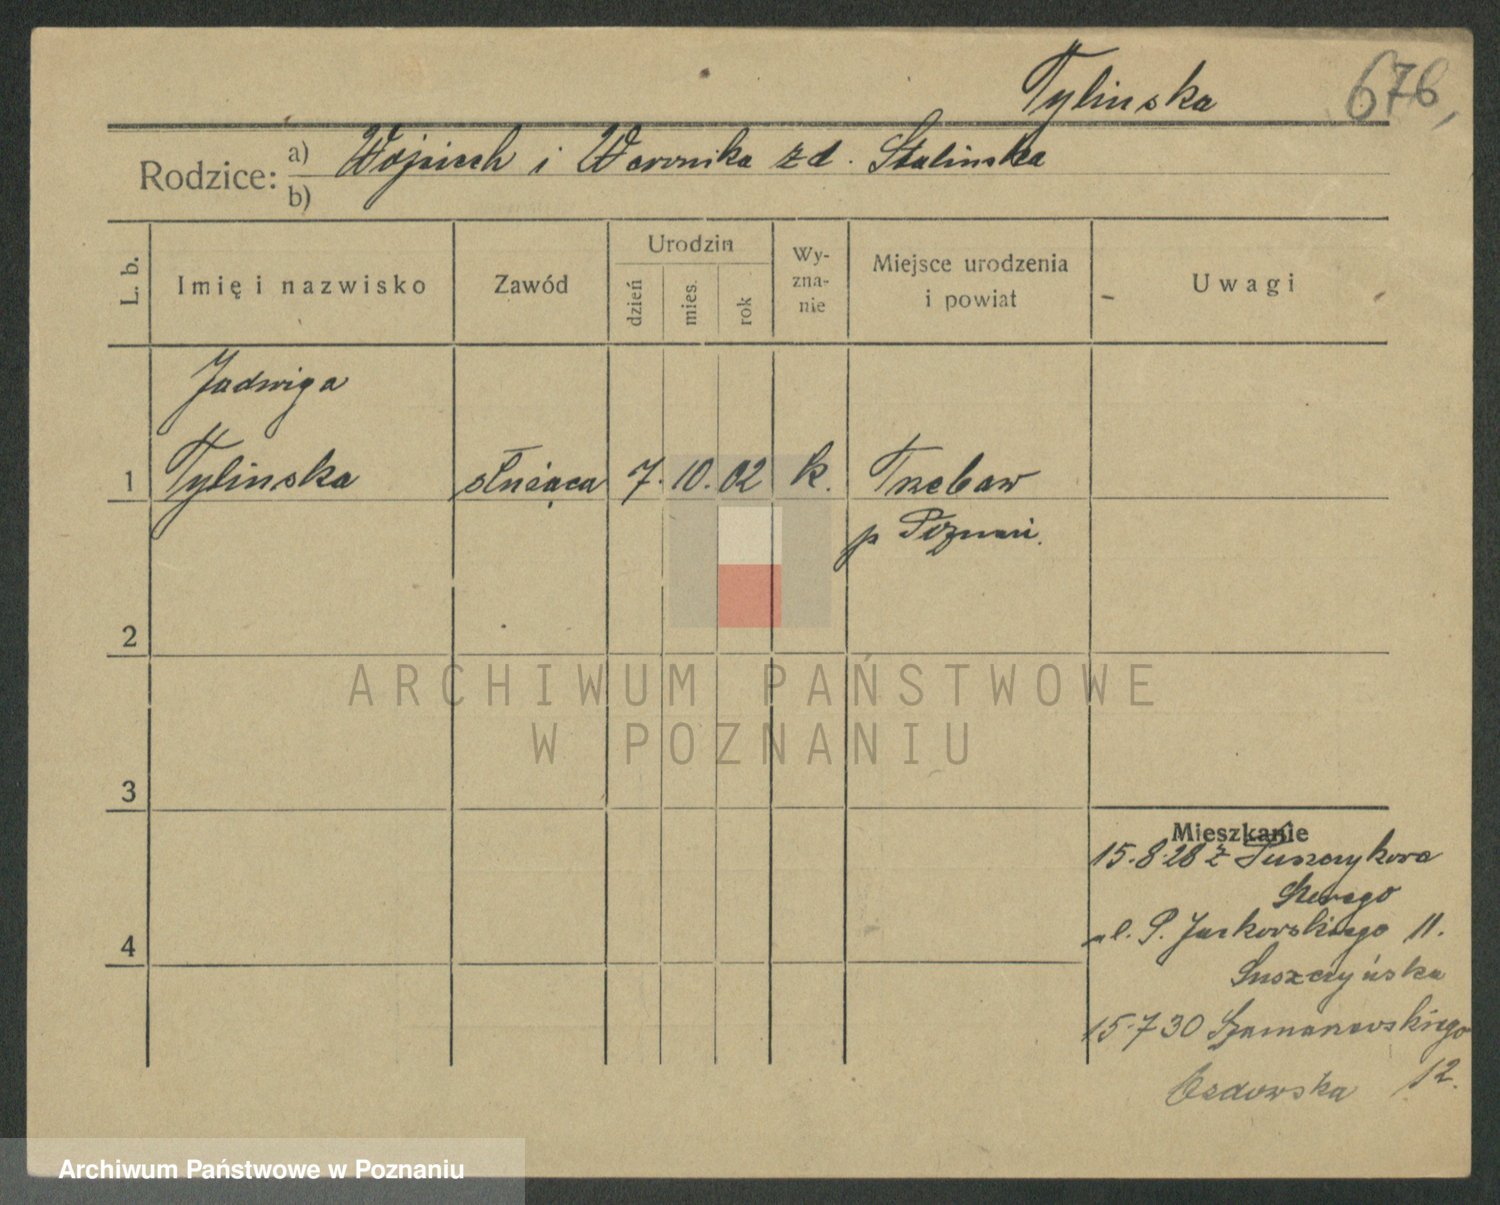 Tylinska 676,
Rodzice: a) Wojciech i Weronika z d. Stalinska
b)
L. b. Imię i nazwisko Zawód Urodzin dzień mies. rok Wy-zna-nie Miejsce urodzenia i powiat Uwagi
Jadwiga
1 Tylinska służąca 7. 10. 02 k. Trzebaw
p Poznań.
2
ARCHIWUM PAŃSTWOWE
W POZNANIU
3
Mieszkanie
15.8.28 z
ul. P. Jackowskiego 11.
4
Suszczyńska
15.7 30 Szamarzewskiego
12.
Archiwum Państwowe w Poznaniu